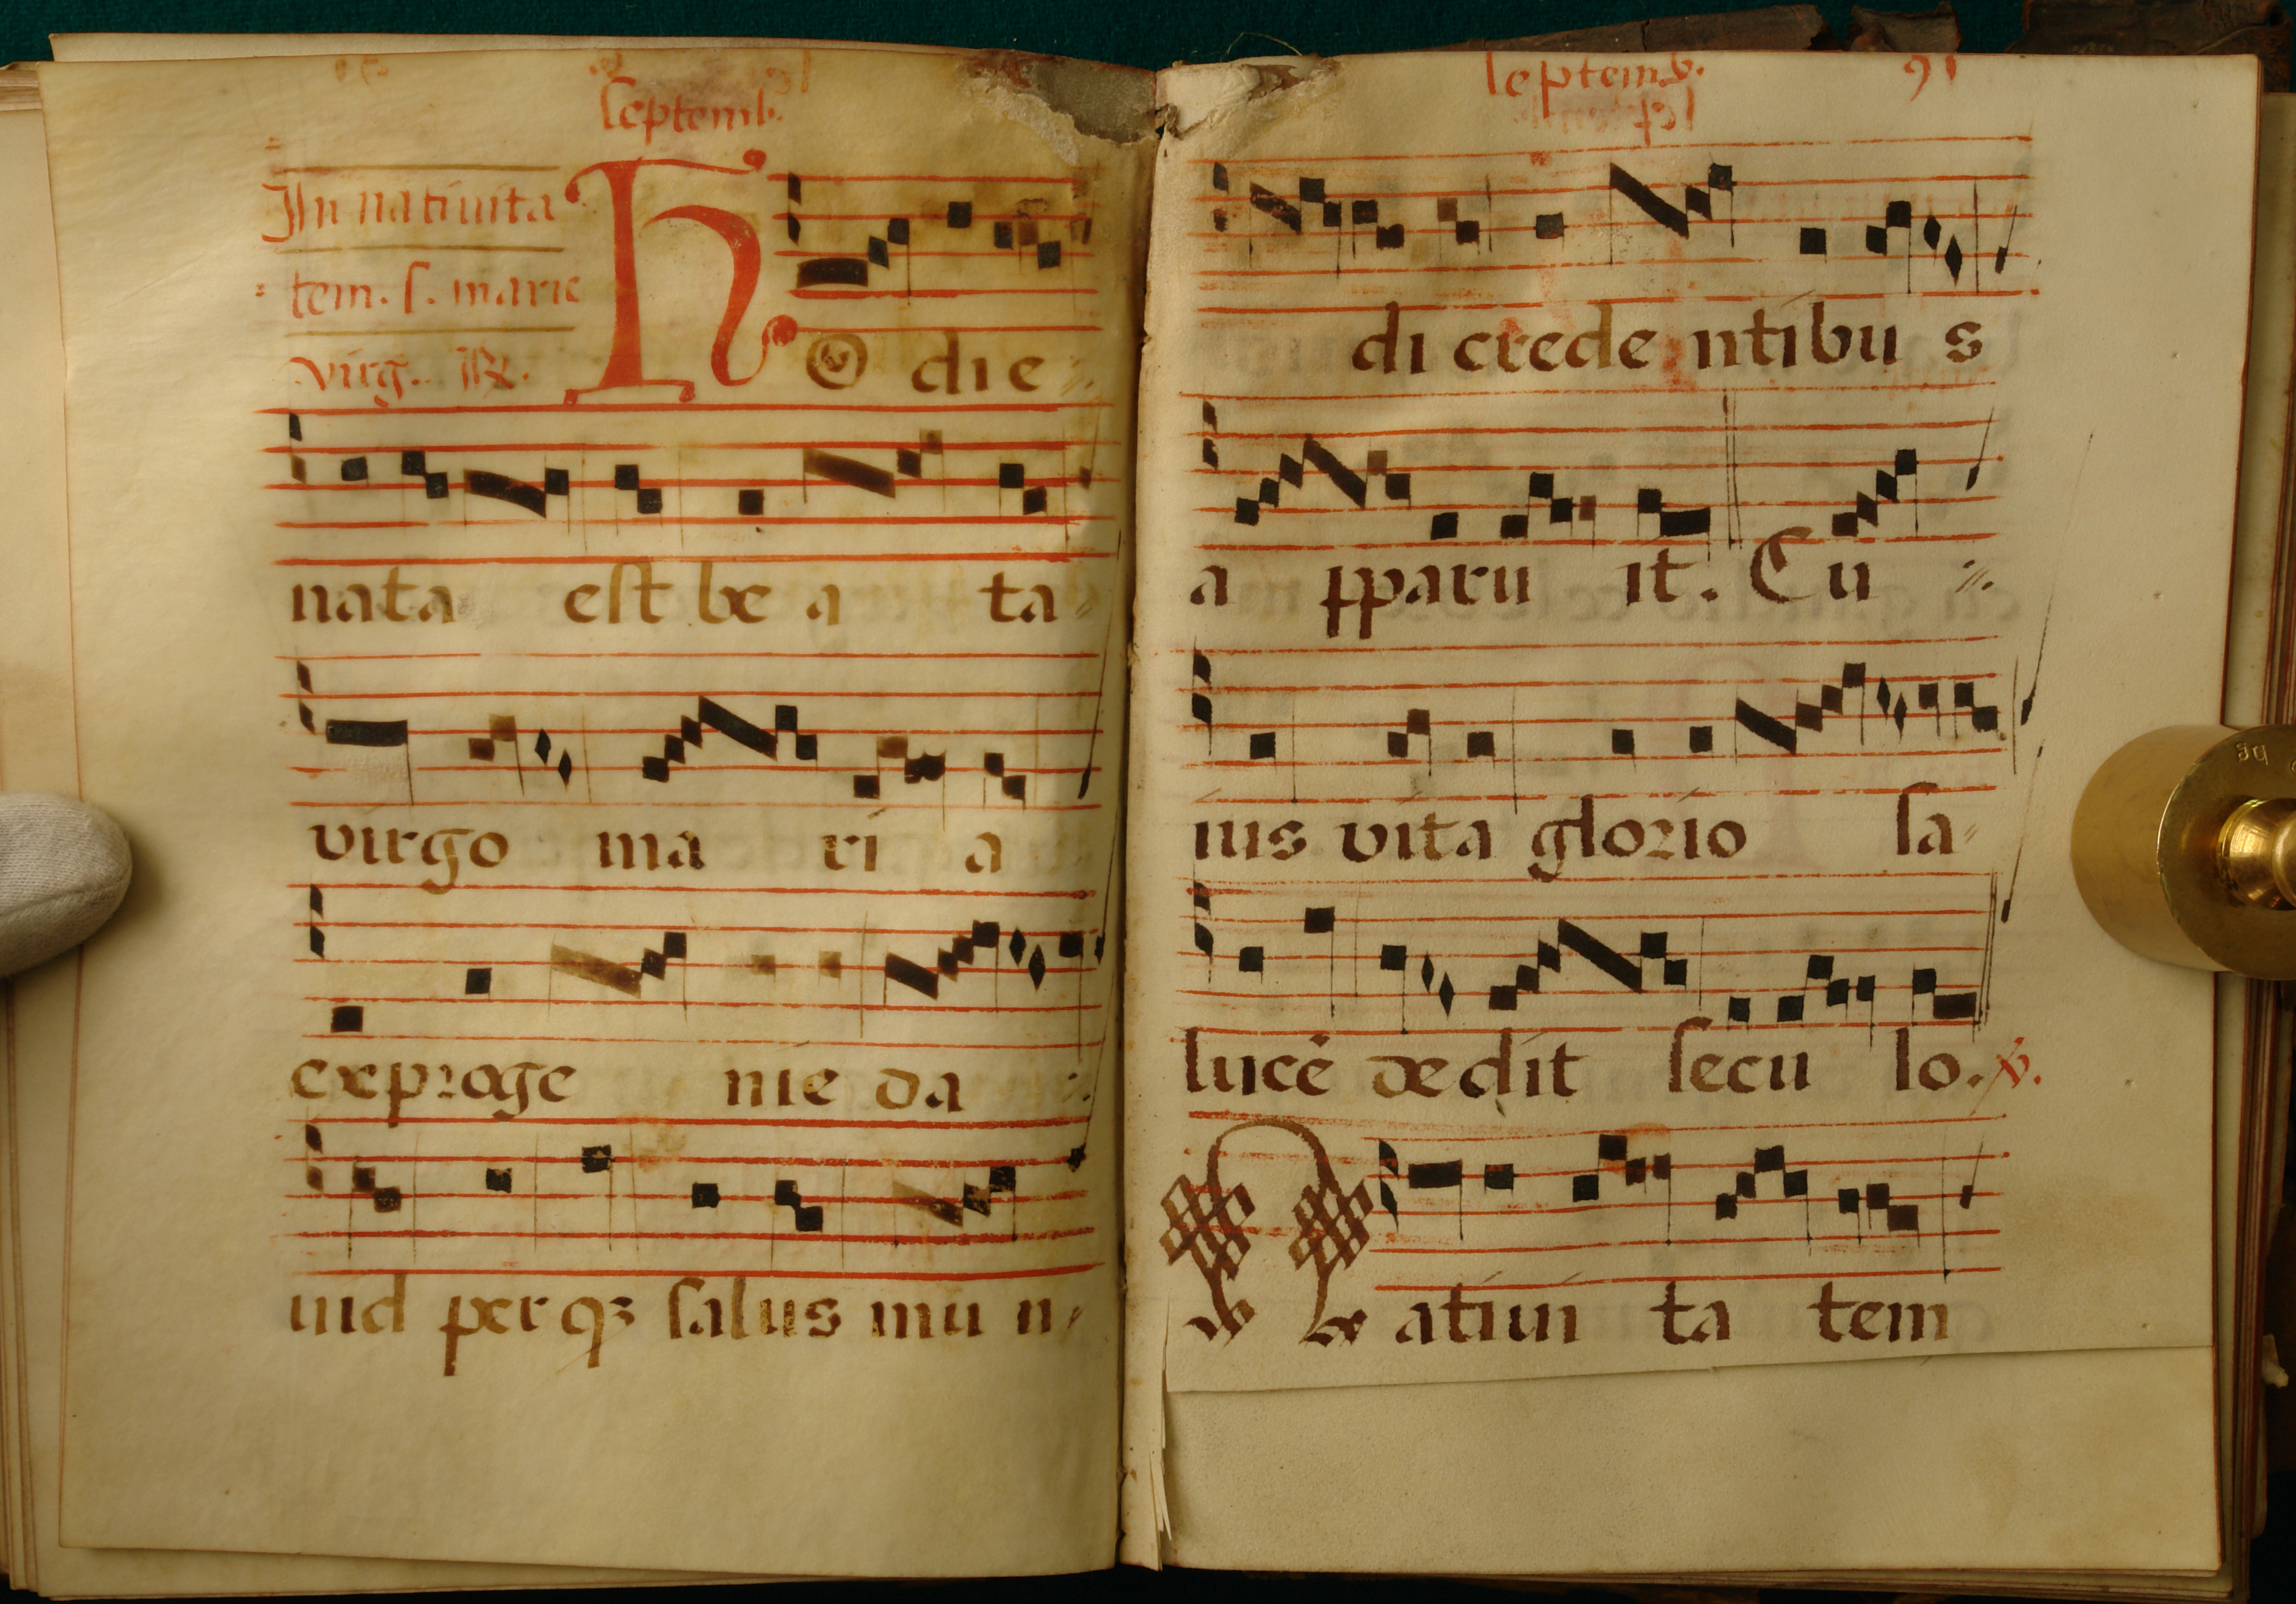 septemb.
In nativita
tem. s. marie
virg. ℟.
Hodie
nata est be a ta
virgo ma ri a
ex proge nie da
uid per qȝ salus mu n
septemb. 91
di crede ntibu s
a pparu it. Cu
ius vita glorio sa
lucē dedit secu lo. ℣.
Natiui ta tem